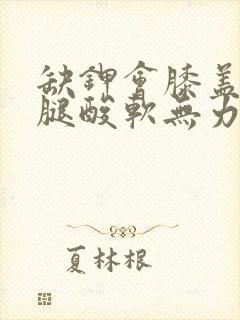 缺鉀會膝蓋
腿酸軟無力
夏林根